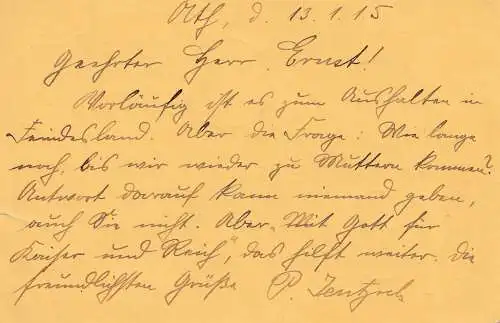 Ath, d. 13.1.15
Geehrter Herr Ernst!
Vorläufig ist es zum Aushalten in
Feindesland. Aber die Frage: Wie lange
noch, bis wir wieder zu Muttern kommen?
Antwort darauf kann niemand geben,
auch Sie nicht. Aber „Mit Gott für
Kaiser und Reich", das hilft weiter. Die
freundlichsten Grüße P. Jentzsch